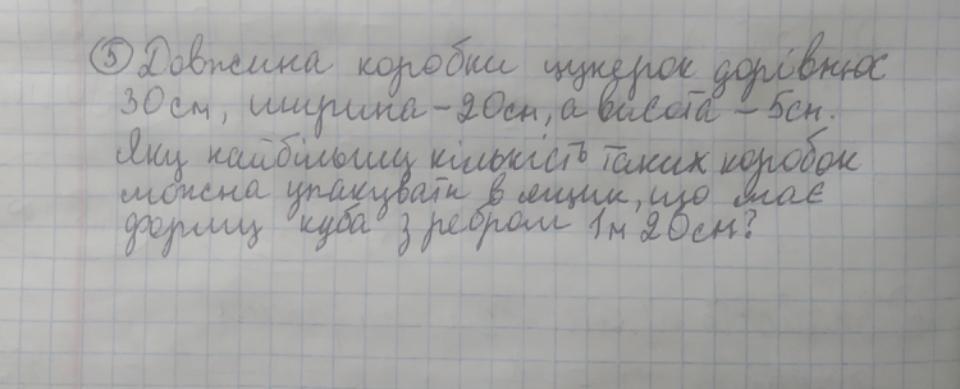 ⑤ Довжина коробки цукерок дорівнює
30см, ширина – 20см, а висота – 5см.
Яку найбільшу кількість таких коробок
можна упакувати в ящик, що має
форму куба з ребром 1м 20см?